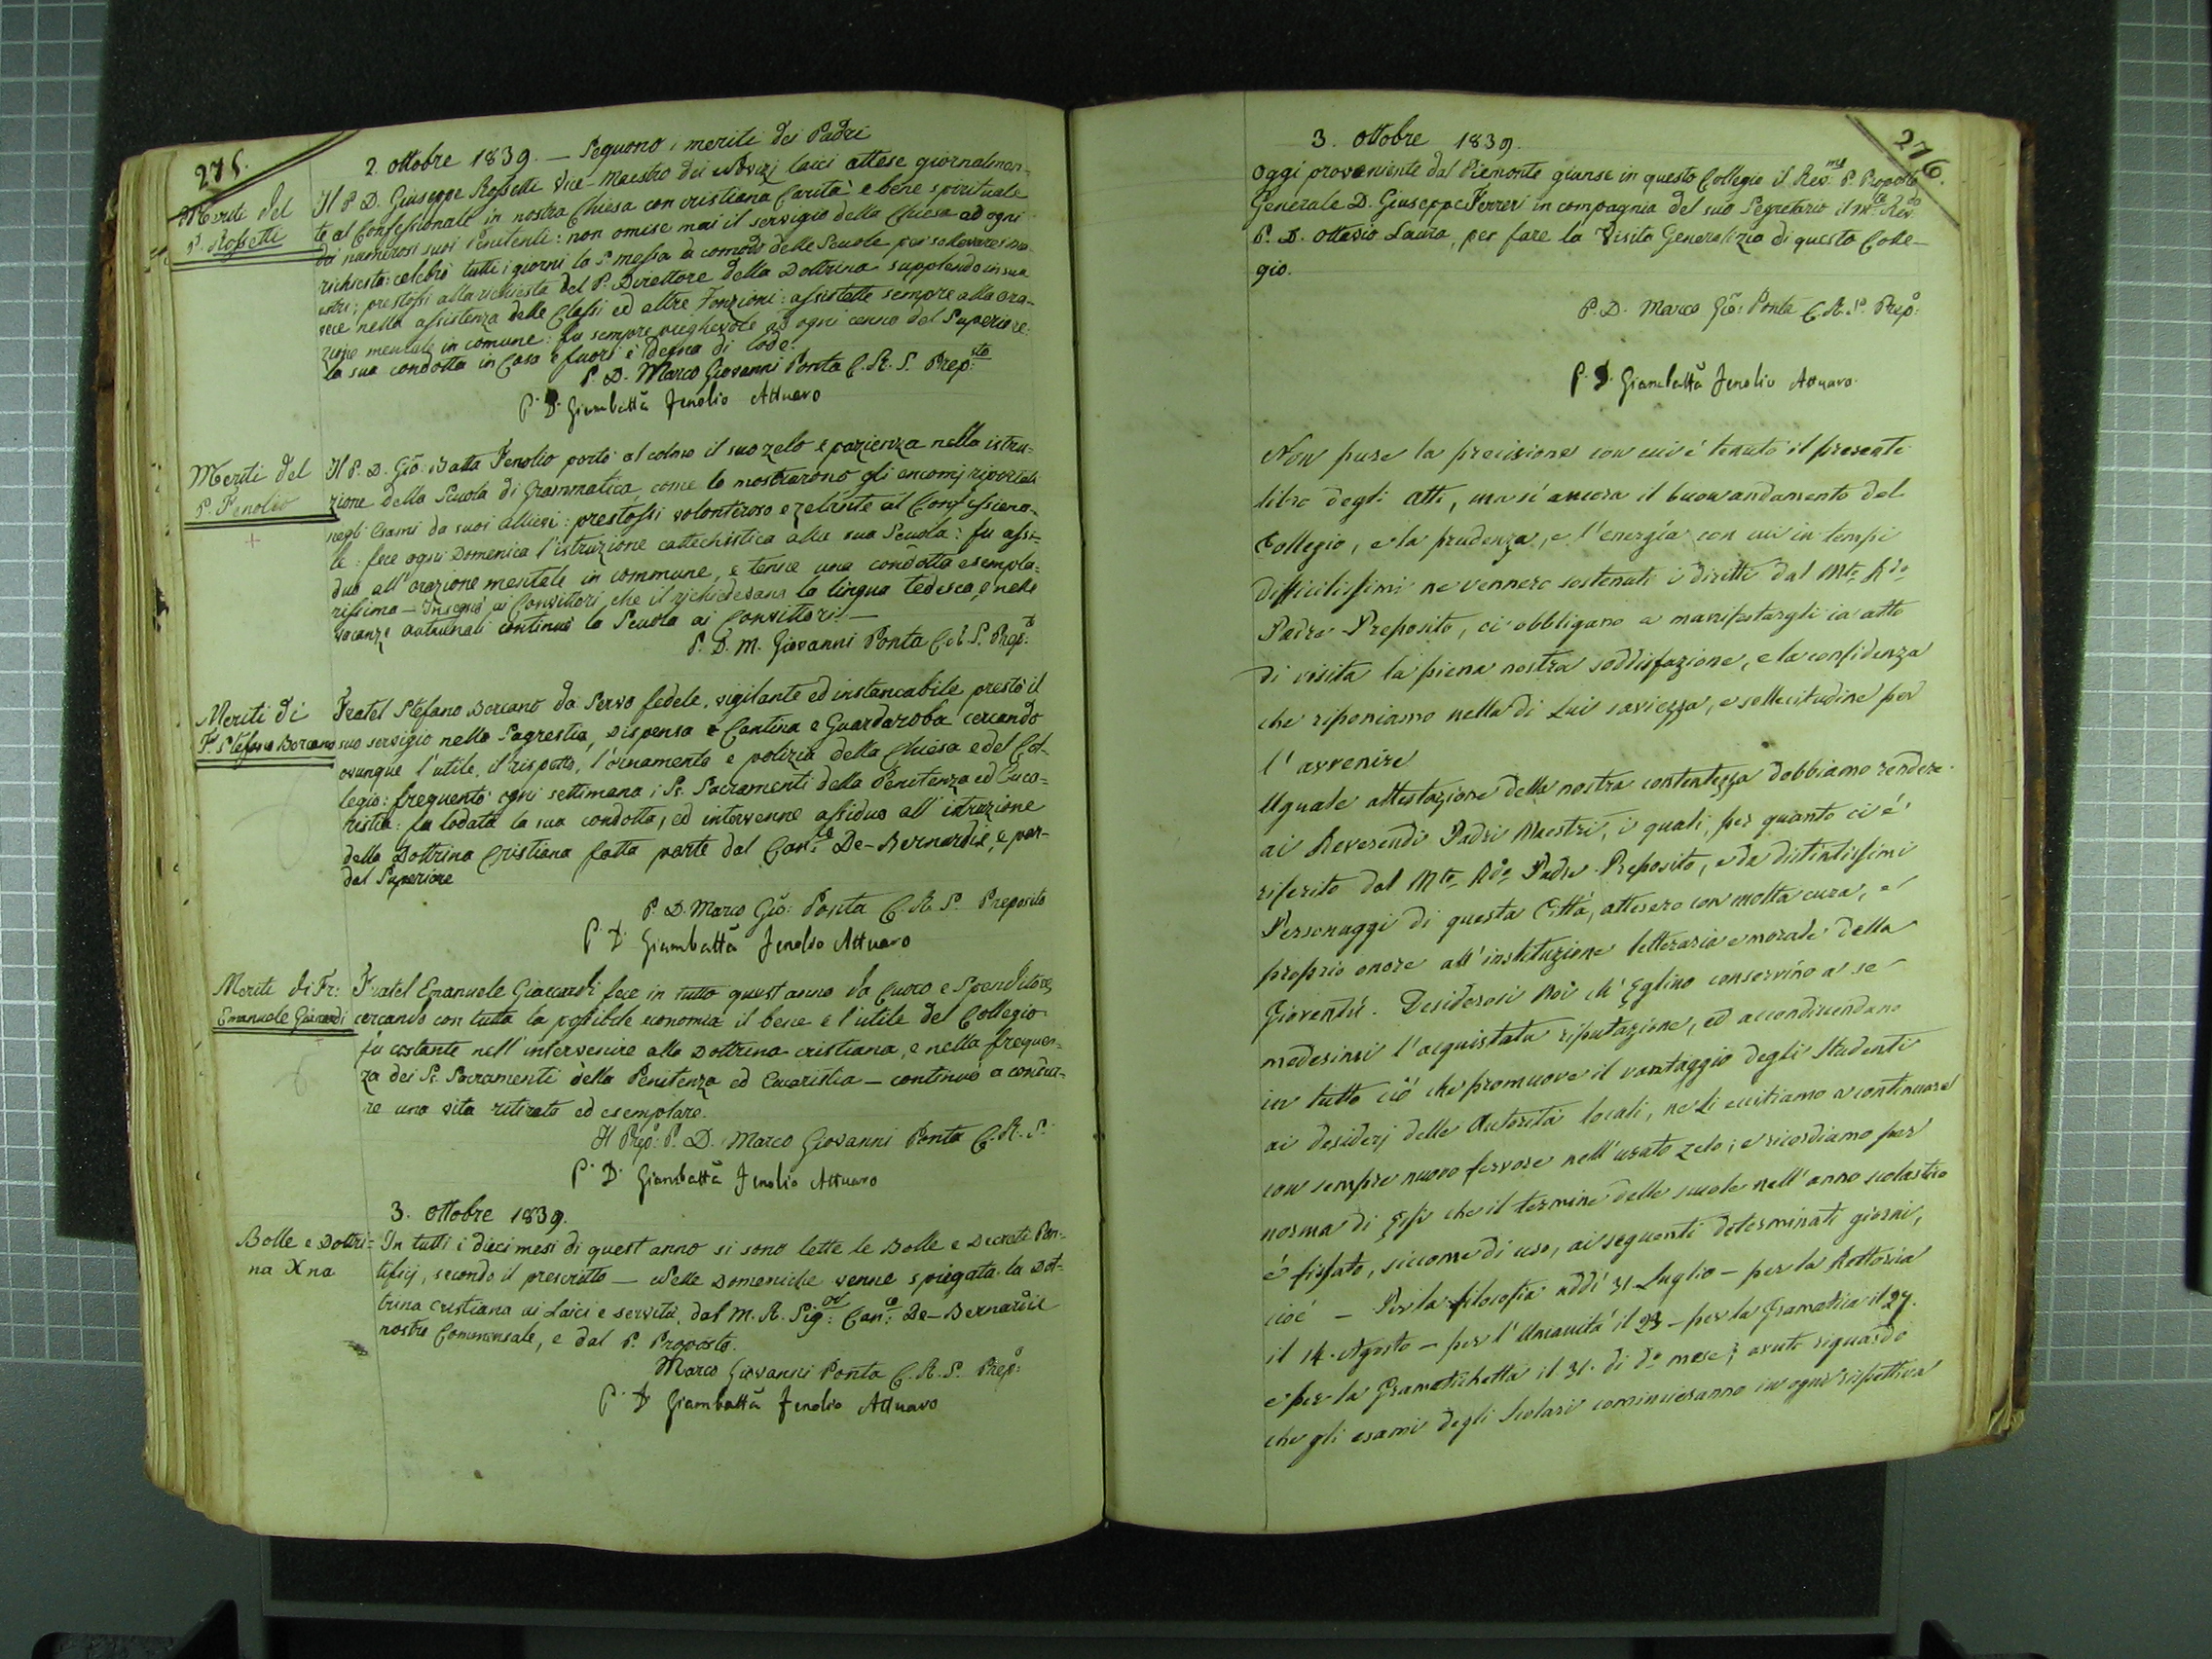 275.
2. ottobre 1839. — Seguono i meriti dei Padri
Meriti del
P. Rossetti
Il P. D. Giuseppe Rossetti Vice-Maestro dei Novizi laici attese giornalmen-
te al Confessionale in nostra Chiesa con cristiana Carità e bene spirituale
dei numerosi suoi Penitenti: non omise mai il servigio della Chiesa ad ogni
richiesta: celebrò tutti i giorni la S. messa a comodo delle Scuole per sollevare i ma-
estri; prestossi alla richiesta del P. Direttore della Dottrina supplendo in sua
vece nella assistenza delle Classi ed altre Fonzioni: assistette sempre alla ora-
zione mentale in comune: fu sempre pieghevole ad ogni cenno del Superiore:
la sua condotta in Casa e fuori è degna di lode.
P. D. Marco Giovanni Ponta C. R. S. Prep.sto
P. D. Giambattā Fenolio Attuaro
Meriti del
P. Fenolio
Il P. D. Gio: Batta Fenolio portò al colmo il suo zelo e pazienza nella istru-
zione della Scuola di Grammatica, come lo mostrarono gli encomj riportati
negli Esami da suoi allievi: prestossi volonteroso e zelante al Confessiona-
le: fece ogni Domenica l'istruzione catechistica alla sua Scuola: fu assi-
duo all'orazione mentale in commune, e tenne una condotta esempla-
rissima — Insegnò ai Convittori, che il richiedevano la lingua tedesca, e nelle
vacanze autunnali continuò la Scuola ai Convittori. —
P. D. M. Giovanni Ponta C. R. S. Prep.to
Meriti di
F. Stefano Borcano
Fratel Stefano Borcano da Servo fedele, vigilante ed instancabile prestò il
suo servigio nella Sagrestia, Dispensa e Cantina e Guardaroba cercando
ovunque l'utile, il rispetto, l'ornamento e polizia della Chiesa e del Col-
legio: frequentò ogni settimana i SS. Sacramenti della Penitenza ed Euca-
ristia: fu lodata la sua condotta, ed intervenne assiduo all'istruzione
della Dottrina Cristiana fatta parte dal Can.co De-Bernardis, e par-
dal Superiore
P. D. Marco Gio: Ponta C. R. S. Preposito
P. D. Giambattā Fenolio Attuaro
Meriti di Fr:
Emanuele Giaccardi
Fratel Emanuele Giaccardi fece in tutto quest'anno da Cuoco e Spenditore,
cercando con tutta la possibile economia il bene e l'utile del Collegio:
fu costante nell'intervenire alla Dottrina cristiana, e nella frequen-
za dei SS. Sacramenti della Penitenza ed Eucaristia — continuò a condur-
re una vita ritirata ed esemplare.
Il Prep.o P. D. Marco Giovanni Ponta C. R. S.
P. D. Giambattā Fenolio Attuaro
3. ottobre 1839.
Bolle e Dottri-
na Xna
In tutti i dieci mesi di quest'anno si sono lette le Bolle e Decreti Pon-
tificij, secondo il prescritto — Nelle Domeniche venne spiegata la Dot-
trina Cristiana ai Laici e servitù, dal M. R. Sig.or Can.co De-Bernardis
nostro Commensale, e dal P. Proposto.
Marco Giovanni Ponta C. R. S. Prep.o
P. D. Giambattā Fenolio Attuaro
276.
3. ottobre 1839.
Oggi proveniente dal Piemonte giunse in questo Collegio il Rev.mo P. Proposto
Generale D. Giuseppe Ferreri in compagnia del suo Segretario il M.to Rev.do
P. D. Ottavio Laura, per fare la Visita Generalizia di questo Colle-
gio.
P. D. Marco Gio: Ponta C. R. S. Prep.o
P. D. Giambattā Fenolio Attuaro.
Non pure la precisione con cui è tenuto il presente
libro degli Atti, ma sì ancora il buon andamento del
Collegio, e la prudenza, e l'energia con cui in tempi
difficilissimi ne vennero sostenuti i diritti dal Mto Rdo
Padre Preposito, ci obbligano a manifestargli in atto
di visita la piena nostra soddisfazione, e la confidenza
che riponiamo nella di Lui saviezza, e sollecitudine per
l'avvenire
Uguale attestazione della nostra contentezza dobbiamo rendere
ai Reverendi Padri Maestri, i quali, per quanto ci è
riferito dal Mto Rdo Padre Preposito, e da distintissimi
Personaggi di questa Città, attesero con molta cura, e
proprio onore all'instituzione letteraria e morale della
Gioventù. Desiderosi Noi ch'Eglino conservino a se
medesimi l'acquistata riputazione, ed accondiscendano
in tutto ciò che promuove il vantaggio degli Studenti
ai desiderj delle Autorità locali, ne li eccitiamo a continuare
con sempre nuovo fervore nell'usato zelo; e ricordiamo per
norma di Essi che il termine delle scuole nell'anno scolastico
è fissato, siccome di uso, ai seguenti determinati giorni,
cioè — Per la filosofia addì 31. Luglio — per la Rettorica
il 14. Agosto — per l'Umanità il 23 — per la Gramatica il 27.
e per la Gramatichetta il 31. di do mese; avuto riguardo
che gli esami degli Scolari cominceranno in ogni rispettiva